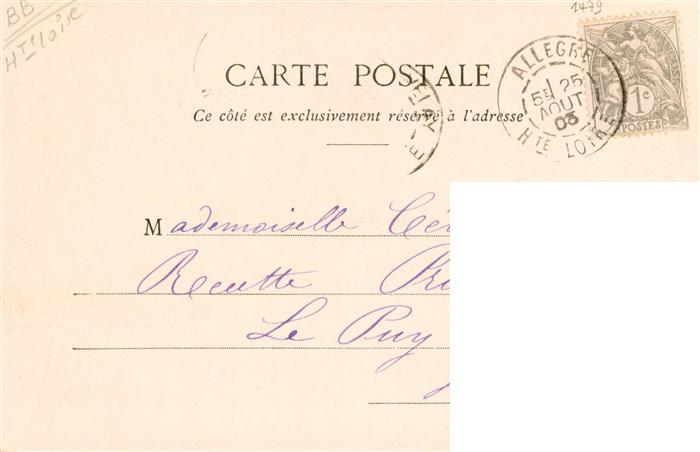 BB
Hte Loire
1479
CARTE POSTALE
Ce côté est exclusivement réservé à l'adresse
ALLEGRE
5E 25
AOUT
03
HTE LOIRE
1c
POSTES
Mademoiselle
Recette
Le Puy